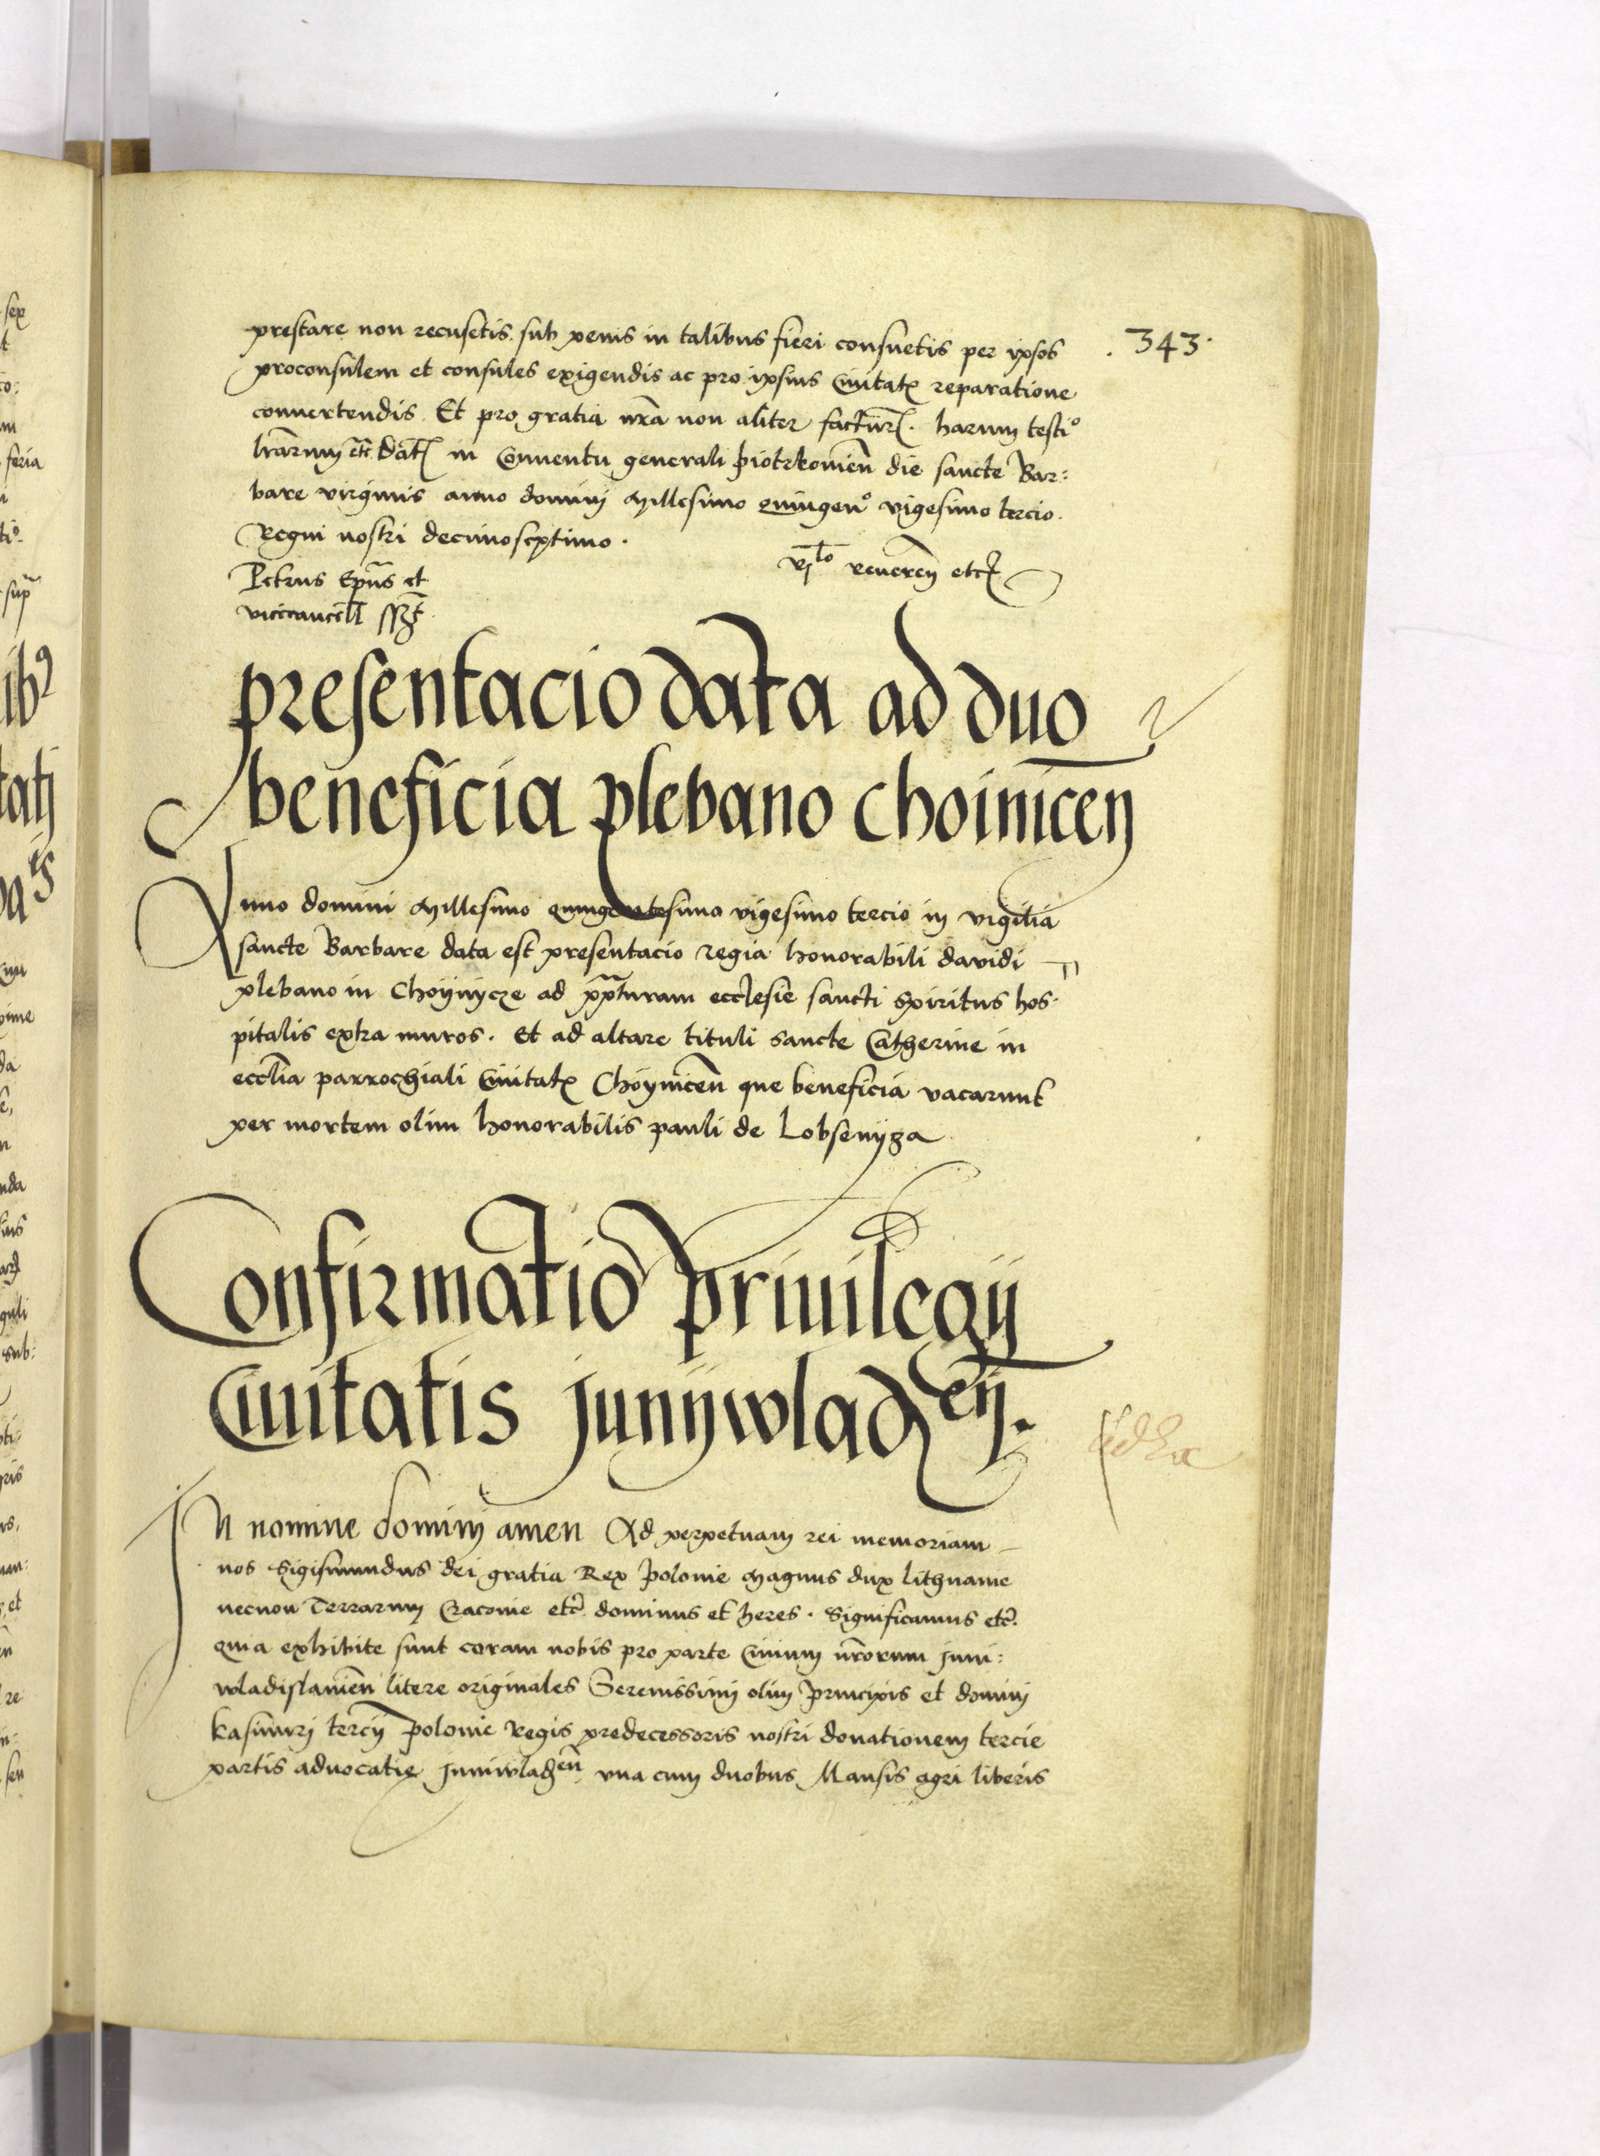 prestare non recusetis sub penis in talibus fieri consuetis per ipsos
. 343 ·
proconsulem et consules exigendis ac pro ipsius Civitatꝭ reparatione
convertendis. Et pro gratia nr̃a non aliter facturꝭ. harum testi°
lr̃arum etc̃ Datꝭ in Conventu generali piotrkovien̄ die sancte Bar:
bare virginis anno domini Millesimo quingen° vigesimo tercio.
Regni nostri decimoseptimo.
Petrus Ep̃us et
vicecancell̃ sszt
Rlo reveren̄ etcꝭ
presentacio data ad duo
beneficia plebano choinicen̄
Anno domini Millesimo quingentesimo vigesimo tercio in vigilia
sancte Barbare data est presentacio regia honorabili davidi
plebano in Choÿnycze ad pp̃turam ecclesie sancti spiritus hos-
pitalis extra muros. Et ad altare tituli sancte Catherine in
eccl̃ia parrochiali Civitatꝭ Choÿnicen̄ que beneficia vacarunt
per mortem olim honorabilis pauli de Lobsenÿza
Confirmatio privilegij
Civitatis junÿwladꝭen̄.
In nomine domini amen Ad perpetuam rei memoriam
nos Sigismundus dei gratia Rex polonie Magnus dux lithuanie
necnon Terrarum Cracovie etc̃ dominus et heres. Significamus etc̃.
quia exhibite sunt coram nobis pro parte Civium nr̃orum juni:
wladislavien̄ litere originales Serenissimi olim principis et domini
kasimiri tercij polonie Regis predecessoris nostri donationem tercie
partis advocatie juniwladꝭen̄ una cum duobus Mansis agri liberis